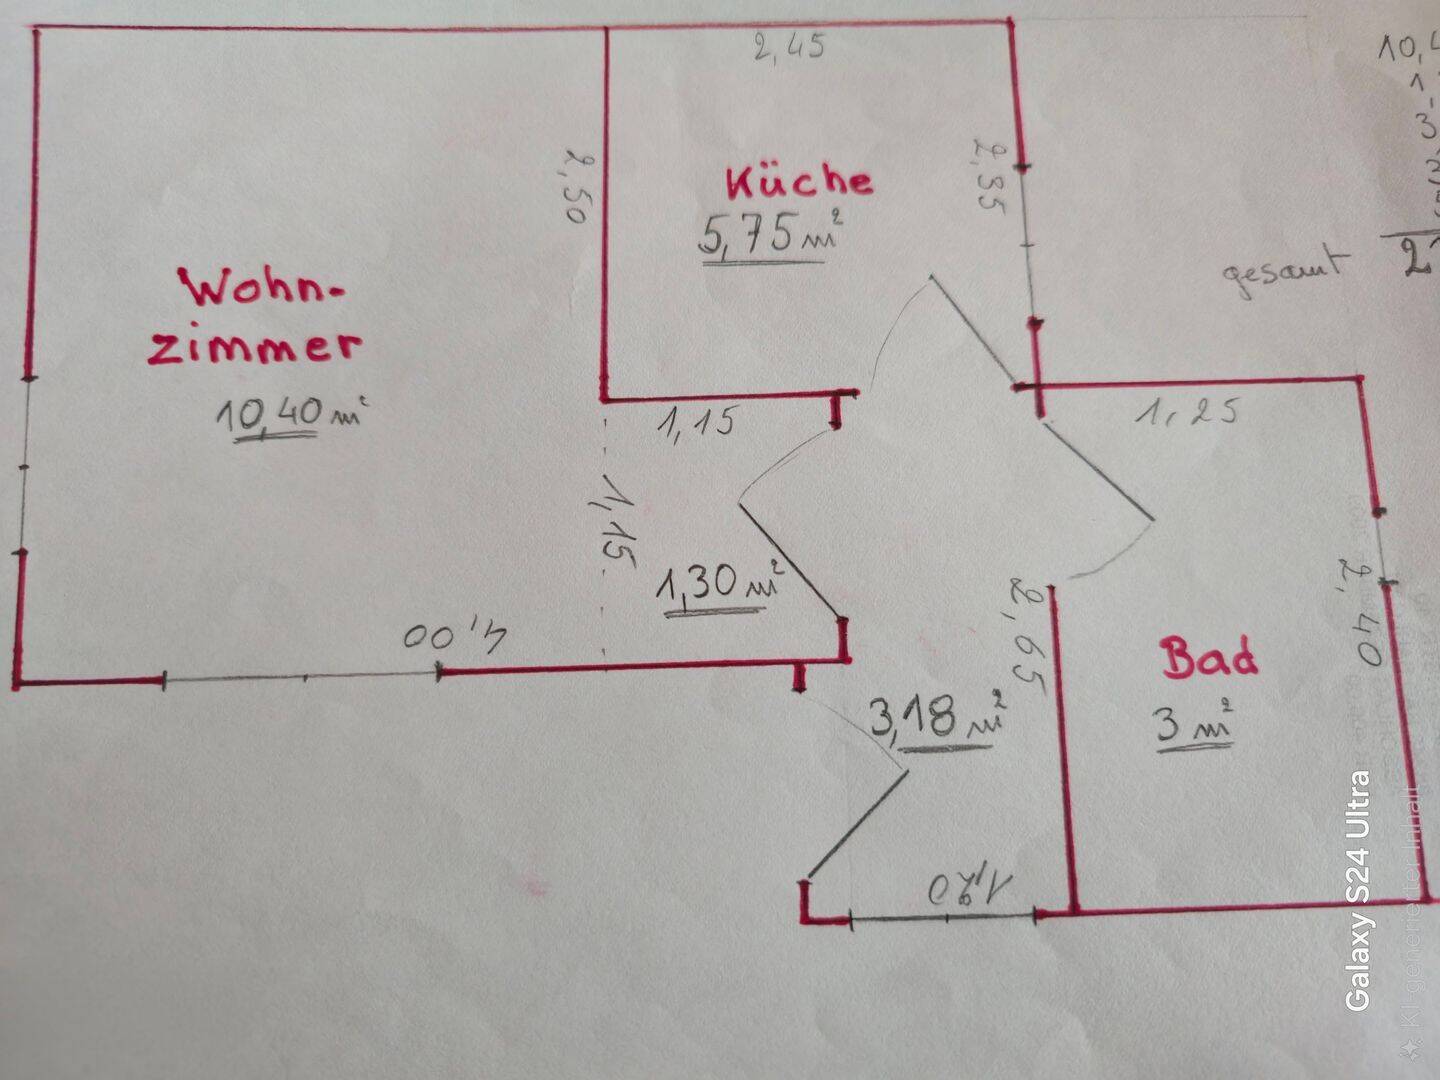 2,45
10,4
1
3
2,50
Küche
5,75 m²
2,35
gesamt 2
Wohn-
zimmer
10,40 m²
1,15
1,25
1,15
1,30 m²
4,00
2,65
2,40
Bad
3 m²
3,18 m²
1,20
Galaxy S24 Ultra
KI generierter Inhalt